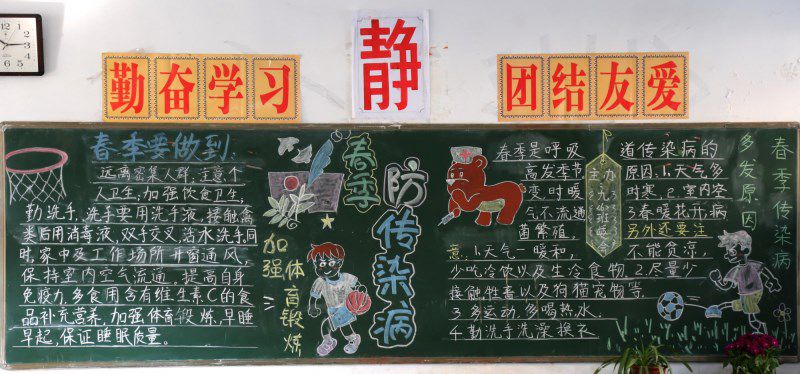 勤奋学习
静
团结友爱
春季要做到:
远离密集人群,注意个
人卫生,加强饮食卫生,
勤洗手,洗手要用洗手液,接触禽
类后用消毒液,双手交叉,活水洗手,同
时,家中及工作场所开窗通风,
保持室内空气流通。提高自身
免疫力,多食用含有维生素C的食
品补充营养,加强体育锻炼,早睡
早起,保证睡眠质量。
春季
防传染病
加强
体育锻炼
春季是呼吸
高发季节
变,时暖
气不流通
菌繁殖,
意:1.天气一暖和,
少吃冷饮以及生冷食物
接触,牲畜以及狗猫宠物等,
3.多运动,多喝热水.
4.勤洗手洗澡换衣
主办
道传染病的
原因:1.天气多
时寒,2.室内空
3.春暖花开,病
另外还要注
不能贪凉,
2.尽量少
春季传染病
多发原因